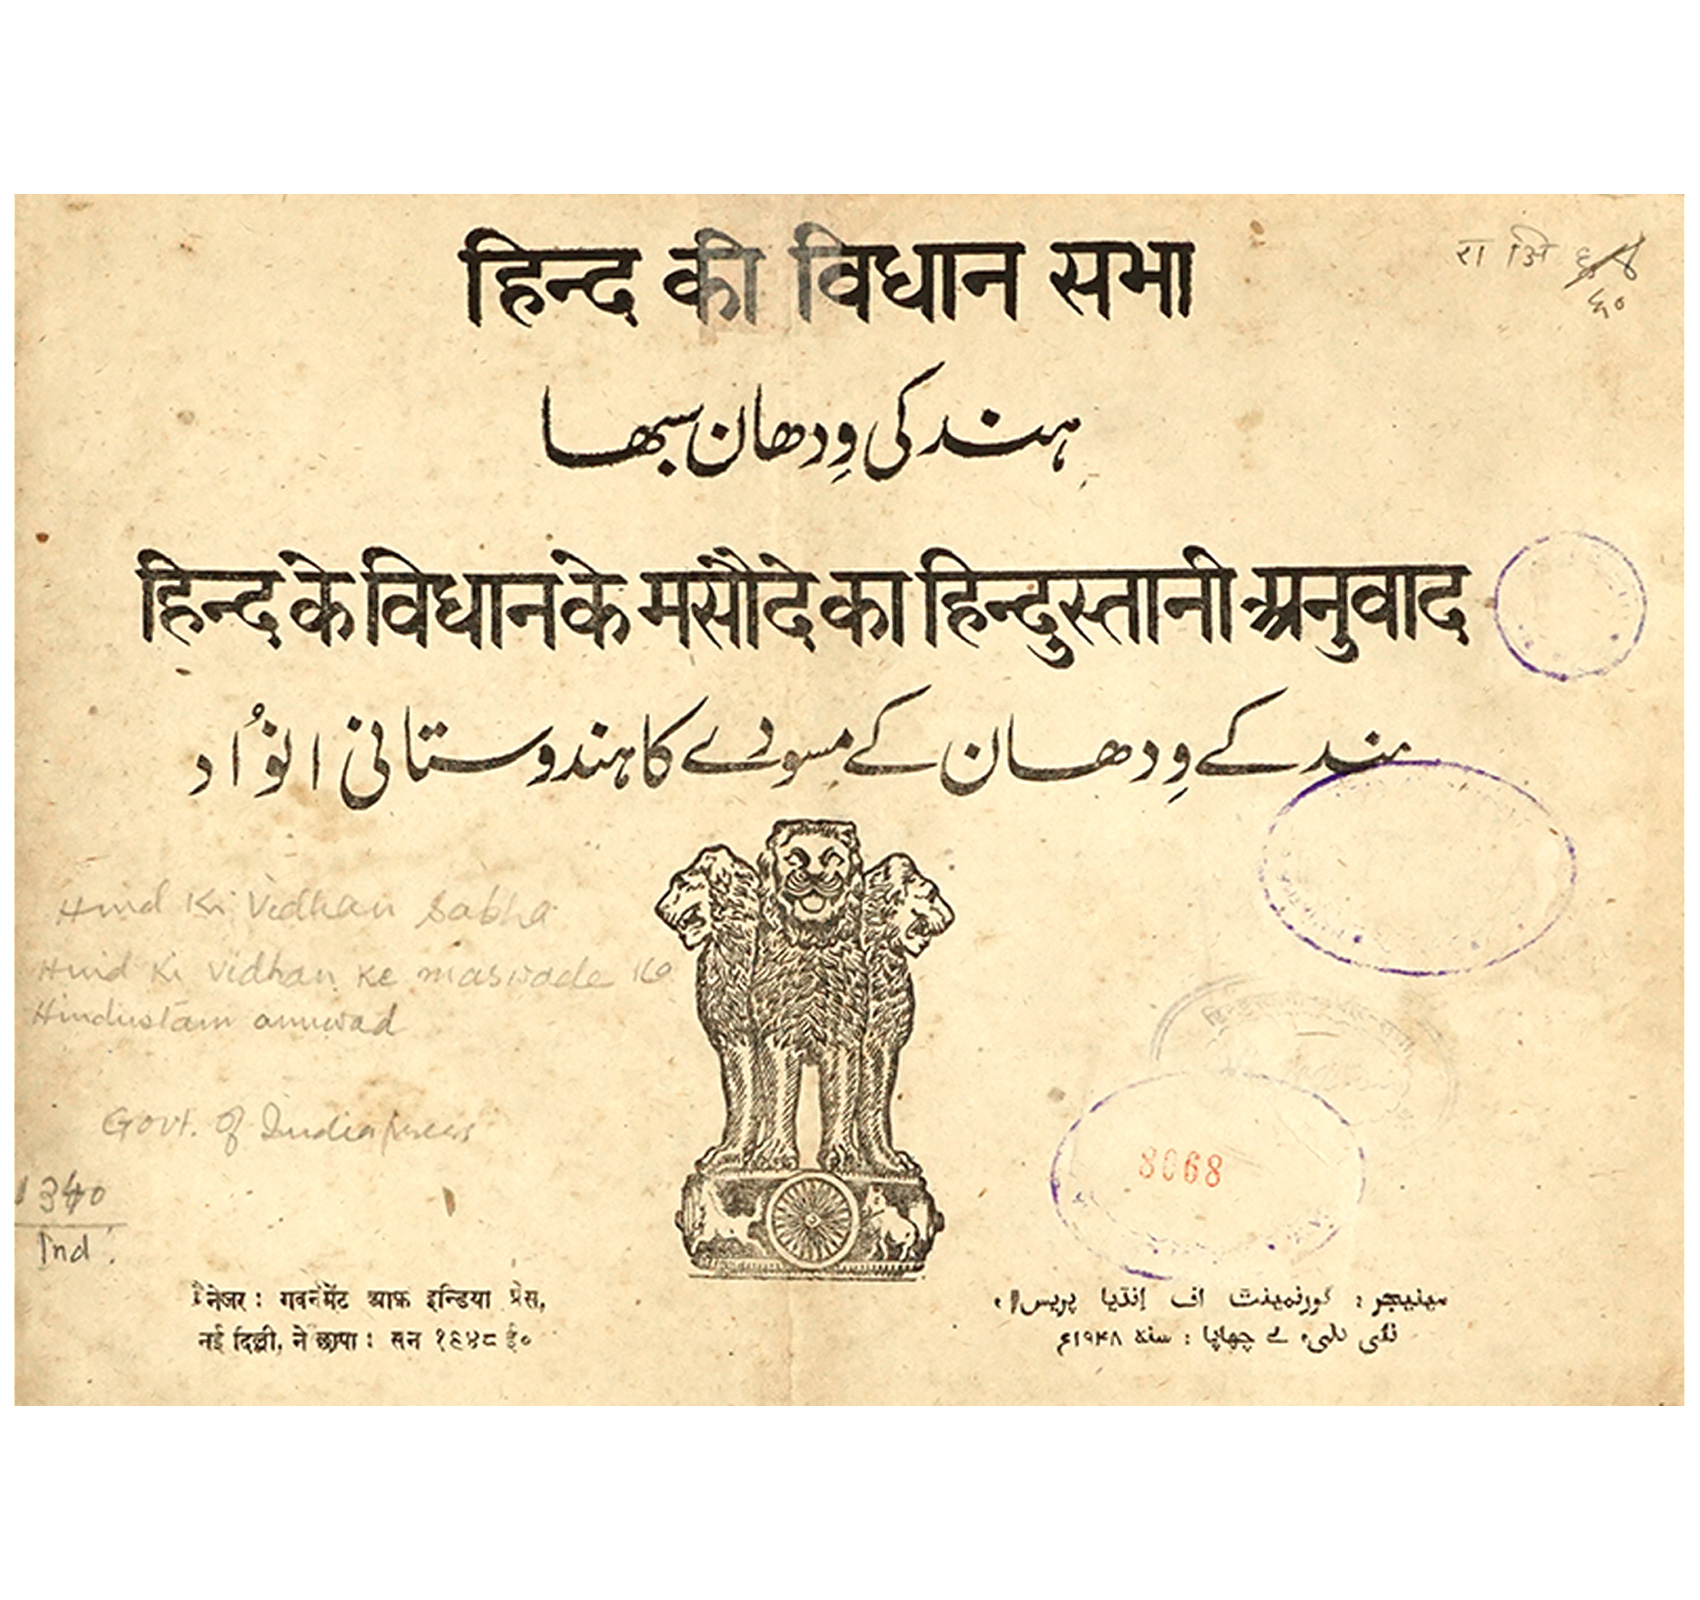 हिन्द की विधान सभा
रा अि ६४
६०
ہند کی وِدھان سبھا
हिन्द के विधान के मसौदे का हिन्दुस्तानी अनुवाद
ہند کے وِدھان کے مسودے کا ہندوستانی انوُاد
Hind Ki Vidhan Sabha
Hind Ki Vidhan Ke maswade Ka
Hindustani anuwad
Govt. of India press
1340
Ind.
8068
मैनेजर : गवर्नमेंट आफ़ इन्डिया प्रेस,
नई दिल्ली, ने छापा : सन १९४८ ई०
مینیجر : گورنمینٹ آف اِنڈیا پریس،
نئی دلی، نے چھاپا : سنہ ۱۹۴۸ع